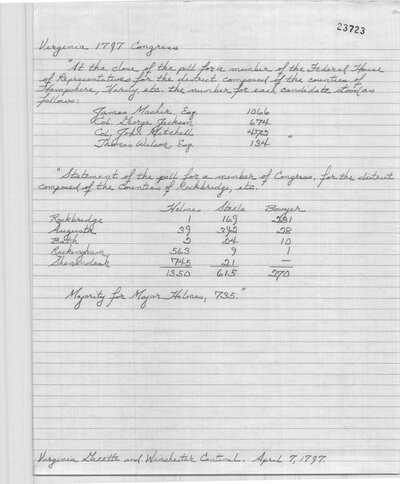 23723
Virginia 1797 Congress
"At the close of the poll for a member of the Federal House
of Representatives for the district composed of the counties of
Hampshire, Hardy, etc. the number for each candidate stood as
follows:
James Machir Esq. 1066
Col. George Jackson 674
Col. John Mitchell
Thomas Wilson Esq. 134 "
"Statement of the poll for a member of Congress, for the district
composed of the Counties of Rockbridge, etc.
Holmes Steele Bowyer
Rockbridge 1 169 231
Augusta 39 392 28
Bath 2 24 10
Rockingham 563 9 1
Shenandoah 745 21 —
1350 615 270
Majority for Major Holmes, 735."
Virginia Gazette and Winchester Centinel. April 7, 1797.